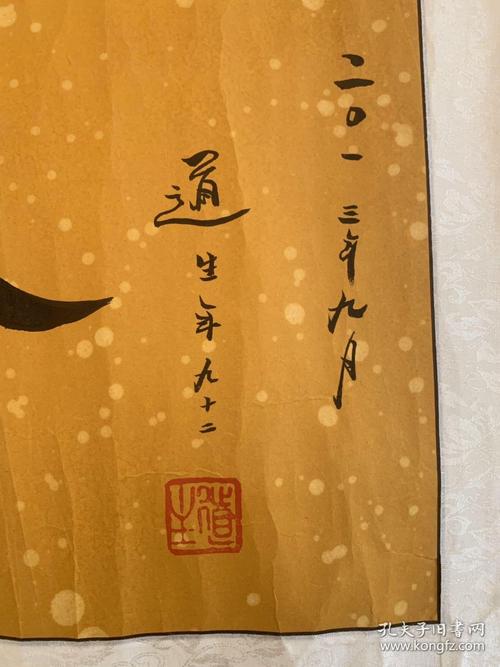 二〇一三年九月
道生年九十二
道生
孔夫子旧书网
www.kongfz.com